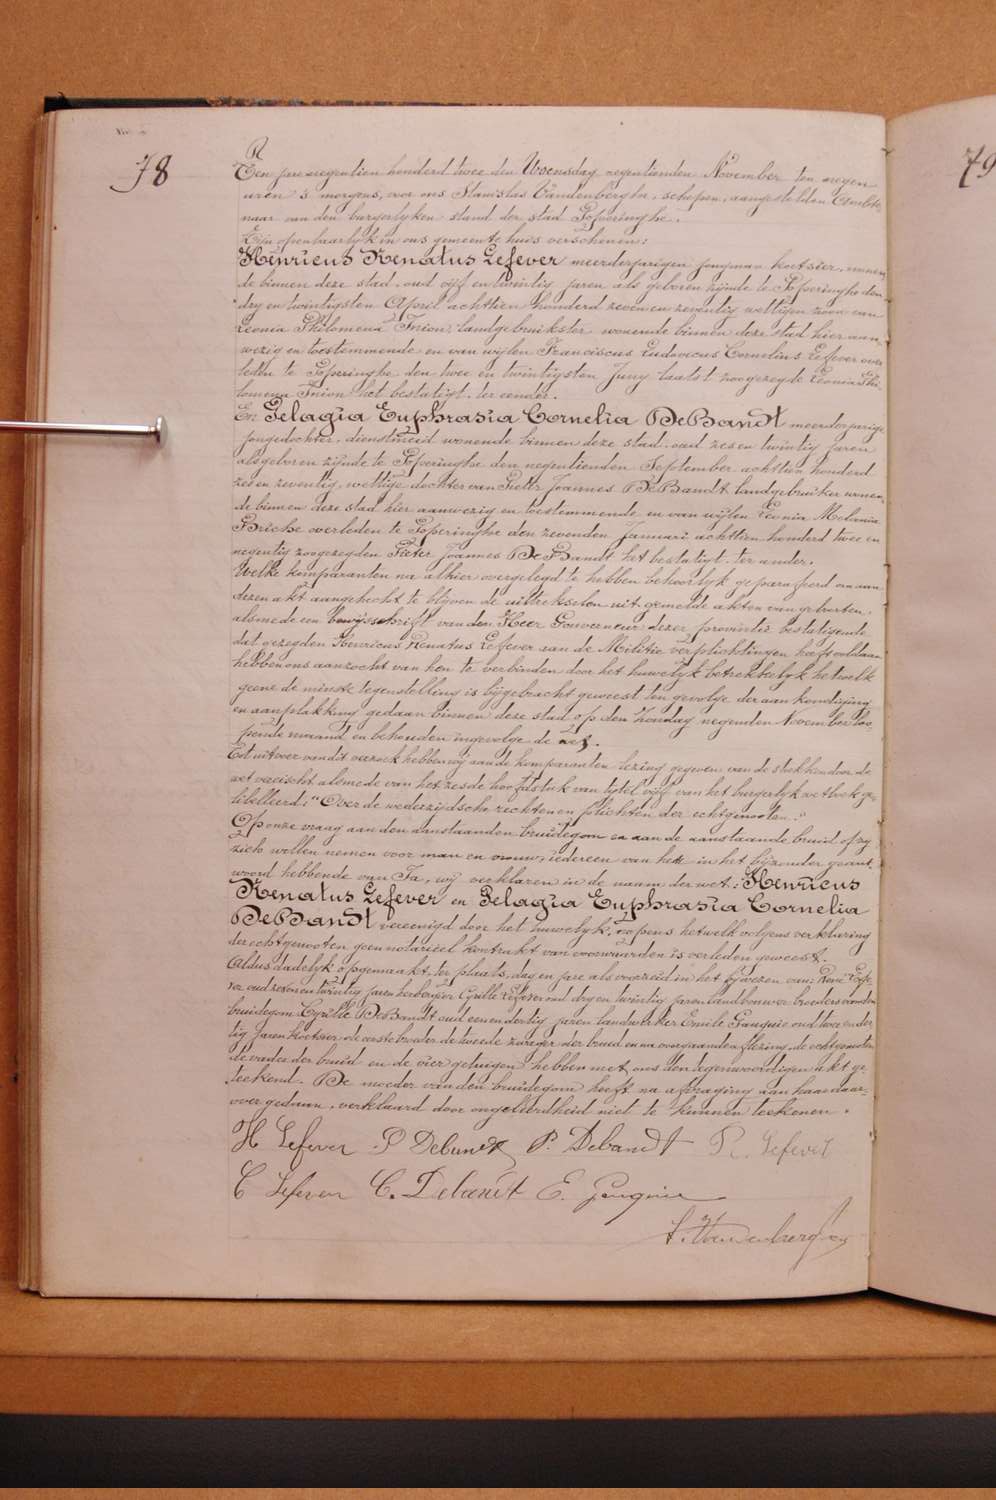 78
79
Ten jare negentien honderd twee den Woensdag negentienden November ten negen
uren 's morgens, voor ons Stanislas Vandenberghe, schepen, aangestelden Ambte-
naar van den burgerlyken stand der stad Poperinghe.
Zijn openbaarlyk in ons gemeente huis verschenen:
Henricus Renatus Lefever meerderjarigen jongman koetsier, wonen-
de binnen deze stad, oud vijf en twintig jaren als geboren zijnde te Poperinghe den
dry en twintigsten April achttien honderd zeven en zeventig wettigen zoon van
Leonia Philomena Inion, landgebruikster wonende binnen deze stad hier aan-
wezig en toestemmende en van wijlen Franciscus Ludovicus Cornelius Lefever over-
leden te Poperinghe den twee en twintigsten Juny laatst zoogezegde Leonia Phi-
lomena Inion het bestatigt. ter eender.
En Pelagia Euphrasia Cornelia DeBandt meerderjarige
jongedochter, dienstmeid wonende binnen deze stad. oud zes en twintig jaren
als geboren zijnde te Poperinghe den negentienden September achttien honderd
zes en zeventig, wettige dochter van Pieter Joannes DeBandt landgebruiker wonen-
de binnen deze stad hier aanwezig en toestemmende en van wijlen Leonia Melania
Briche overleden te Poperinghe den zevenden Januari achttien honderd twee en
negentig zoogezegden Pieter Joannes DeBandt het bestatigt. ter ander.
Welke komparanten na alhier overgelegd te hebben behoorlyk geparafeerd om aan
dezen akt aangehecht te blyven de uittrekselen uit gemelde akten van geboorten,
alsmede een bewysschrift van den Heer Gouverneur dezer provintie bestatigende
dat gezegden Henricus Renatus Lefever aan de Militie verplichtingen heeft voldaan
hebben ons aanzocht van hen te verbinden door het huwelyk betrekkelyk hetwelk
geene de minste tegenstelling is bijgebracht geweest ten gevolge der aankondiging
en aanplakking gedaan binnen deze stad op den Zondag negenden November loo-
pende maand en behouden ingevolge de wet.
Tot uitvoer van dit verzoek hebben wij aan de komparanten lezing gegeven van de stukken door de
wet vereischt alsmede van het zesde hoofdstuk van tytel vijf van het burgerlyk wetboek ge-
libelleerd: "Over de wederzijdsche rechten en plichten der echtgenooten."
Op onze vraag aan den aanstaanden bruidegom en aan de aanstaande bruid of zy
zich wollen nemen voor man en vrouw, iedereen van hen in het bijzonder geant-
woord hebbende van Ja, wij verklaren in de naam der wet: Henricus
Renatus Lefever en Pelagia Euphrasia Cornelia
DeBandt vereenigd door het huwelyk, nopens hetwelk volgens verklaring
der echtgenooten geen notarieel kontrakt van voorwaarden is verleden geweest.
Aldus dadelyk opgemaakt, ter plaats, dag en jare als voorzeid in het bywezen van: René Lefe-
ver oud zeven en twintig jaren Cyrille Lefever oud dry en twintig jaren landbouwer broeders van den
bruidegom Cyrille DeBandt oud een en dertig jaren landwerker Emile Gauquie oud twee en der-
tig jaren koetser de eerste broeder de tweede zwager der bruid en na voorgaande aflezing, de echtgenooten
de vader der bruid en de vier getuigen hebben met ons den tegenwoordigen akt ge-
teekend. De moeder van den bruidegom heeft na afvraging aan haar daar-
over gedaan, verklaard door ongeleerdheid niet te kunnen teekenen.
H Lefever P Debandt P. Debandt R. Lefever
C Lefever C. Debandt E. Gauquie
S. Vandenberghe